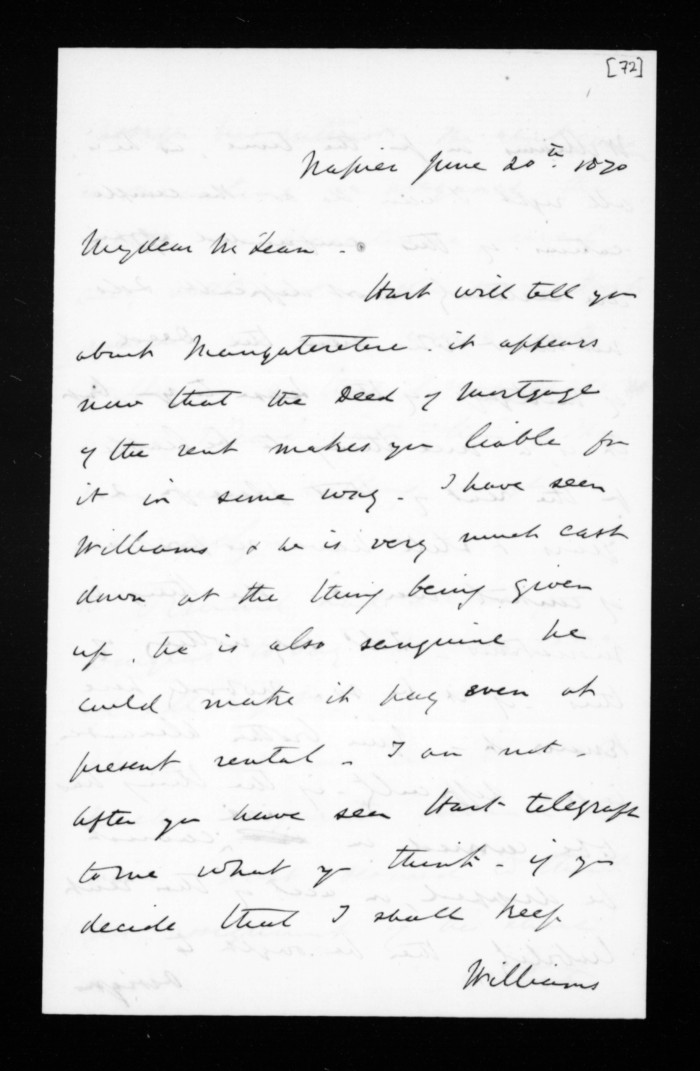 [72]
Napier June 20th 1870
My dear McLean -
Hart will tell you
about Mangateretere. it appears
now that the Deed of Mortgage
of the rent makes you liable for
it in some way - I have seen
Williams & he is very much cast
down at the thing being given
up. he is also sanguine he
could make it pay even at
present rental - I am not -
After you have seen Hart telegraph
to me what you think - if you
decide that I shall keep
Williams